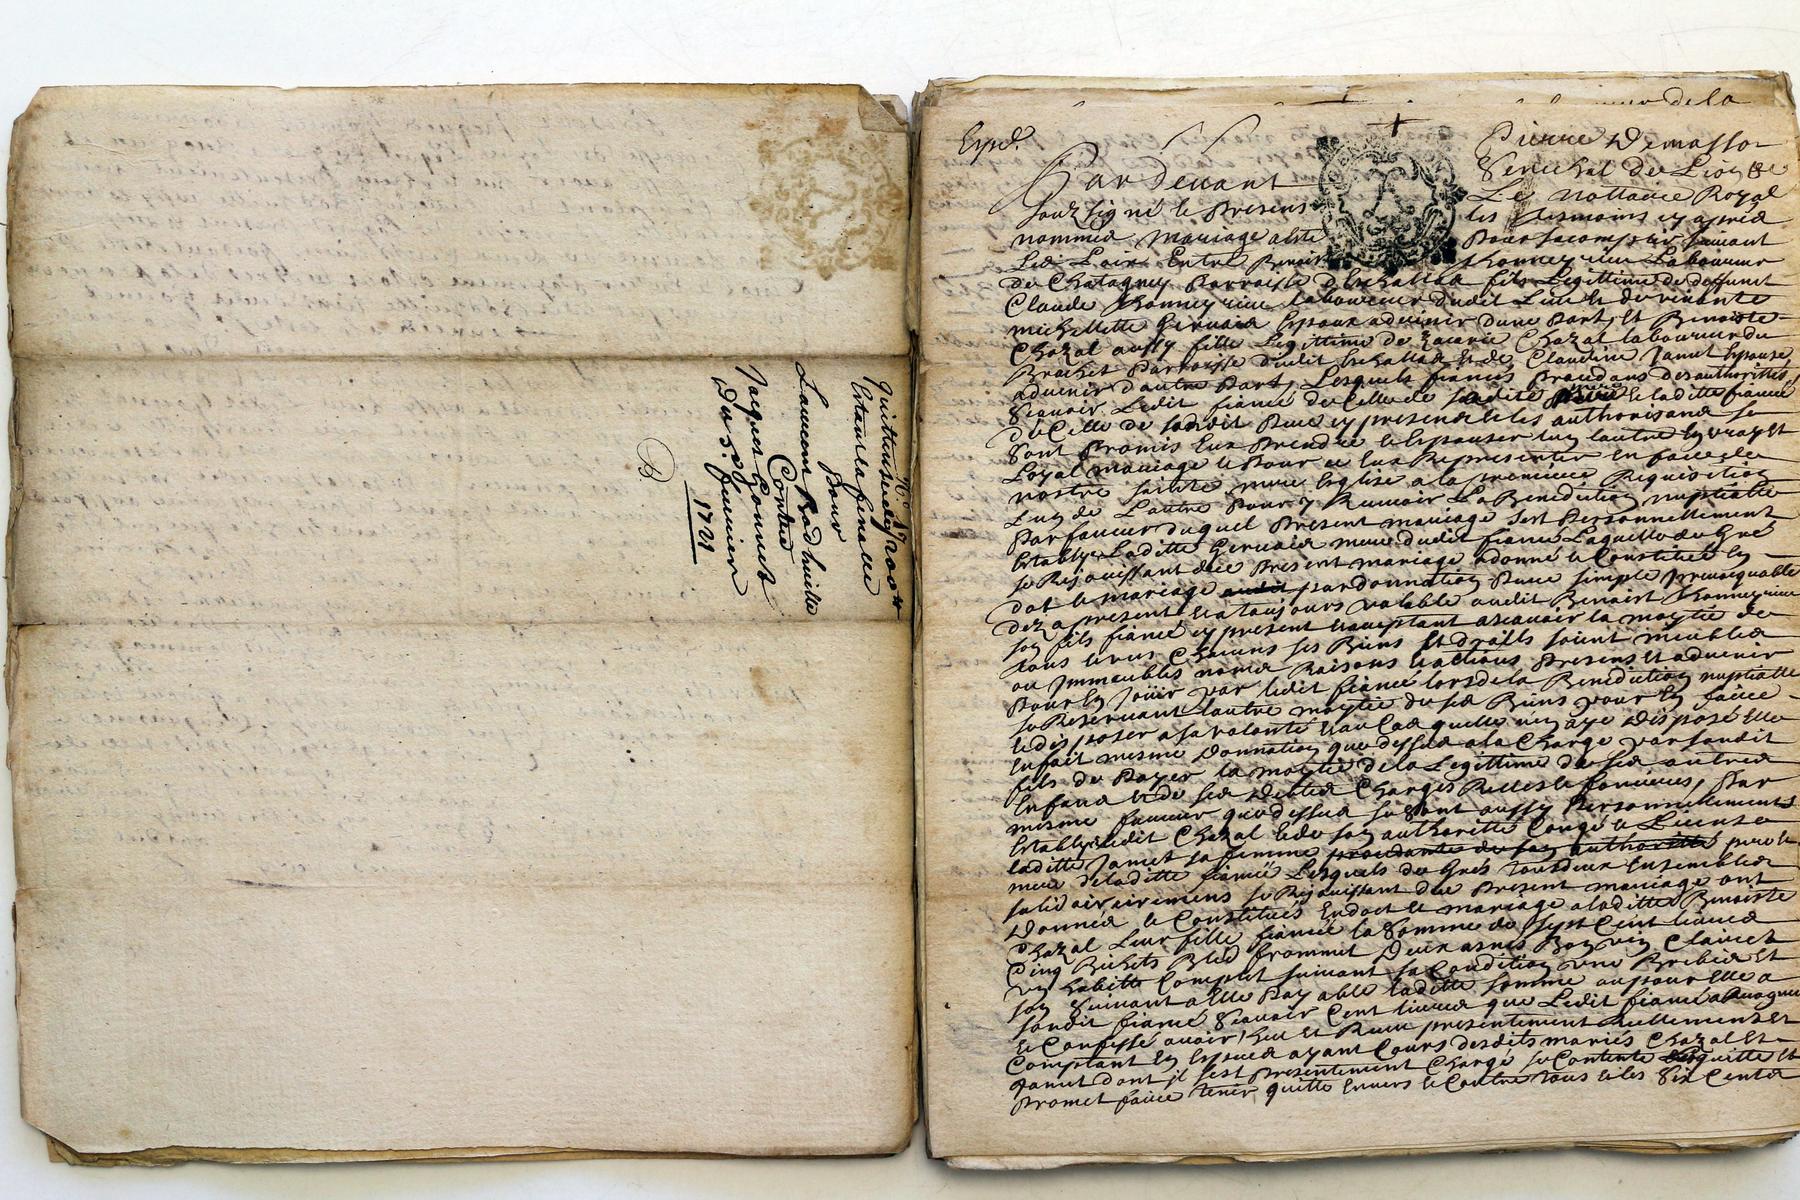 Quittuse de 1200 lt
Estant a la fin de
Pour
Laurent Rodhuille
Contre
Jacques Gonnet
Du 5 feurier
1721
B
de la
Exped.
Pierre Demasso
Senechal de Lion &
Pardeuant Le nottaire Royal
souzsigné le presens les tesmoins cy apres
nommés mariage a este Pour sacomplir suiuant
Les Loix Entre Benoist Thonnerieux Laboureur
de Chatagny Parroisse fils Legittime de deffunct
Claude Thonnerieux laboureur dudit Lieu et de viuante
michellette Geruais Espoux aduenir dune Part, Et Benoiste
Chazal aussy fille Legittime de Zacarie Chazal laboureur du
Brochet Parroisse dudit et de Claudine Janet Espouse
aduenir d'autre Part, Lesquels fiancés Procedans des authorittés
Scauoir Ledit fiancé de Celle de sadite mere et laditte fiancée
de Celle de sondit Pere cy present et les authorisans se
sont Promis Eux Prendre et Espouser lun lautre En vray et
Loyal mariage et Pour ce Eux Representer En face de
nostre sainte mere Eglise a la premiere Requisition
Lun de L'autre Pour y Receuoir La Benediction nuptialle
Par faueur duquel Present mariage sest Personnellement
Establye Laditte Geruais mere dudit fiancé Laquelle de Gré
se Rejouissant dece Present mariage a donné et Constitué En
dot et mariage par donnation Pure simple Irreuoquable
dez a present et a toujours valable audit Benoist Thonnerieux
son fils fiancé cy present et acceptant ascauoir la moytié de
tous et vns Chacuns ses Biens Et droits soient meubles
ou Immeubles noms Raisons et actions Presens et aduenir
Pour En Joüir par ledit fiancé lors de la Benediction nuptialle
se Reseruant lautre moytié de ses Biens pour En faire
et disposer a sa volonté et au Cas quelle n'en aye disposé Elle
En fait mesme donnation que dessus a la Charge par sondit
fils de Payer la moytié de la Legittime de ses autres
Enfans et de ses debtes Charges Reelles et foncieres, Par
mesme faueur que dessus se sont aussy Personnellement
Establys Ledit Chazal et de son authoritté Congé et License
laditte Janet sa femme procedante de son authoritté pere et
mere de laditte fiancée Lesquels de Grés tous deux Ensembles
solidairemens se Rejouissant dece Present mariage ont
donnés et Constitués En dot et mariage a laditte Benoiste
Chazal Leur fille fiancée la somme de sept Cent liures
Cinq Bichets Bled froment Deux asnés Bon vin Clairet
vn habille Complet suiuant sa Condition vne Brebis et
son suiuant a Elle Payable laditte somme ou pour Elle a
sondit fiancé Scauoir Cent liures que Ledit fiancé a
et Confessé auoir heu et Receu presentement Reellement et
Comptant En Especes ayant Cours desdits mariés Chazal et
Janet dont jl sest presentement Chargé se Contente quitte et
Promet faire tenir quitte Enuers et Contre tous et les Six Cents